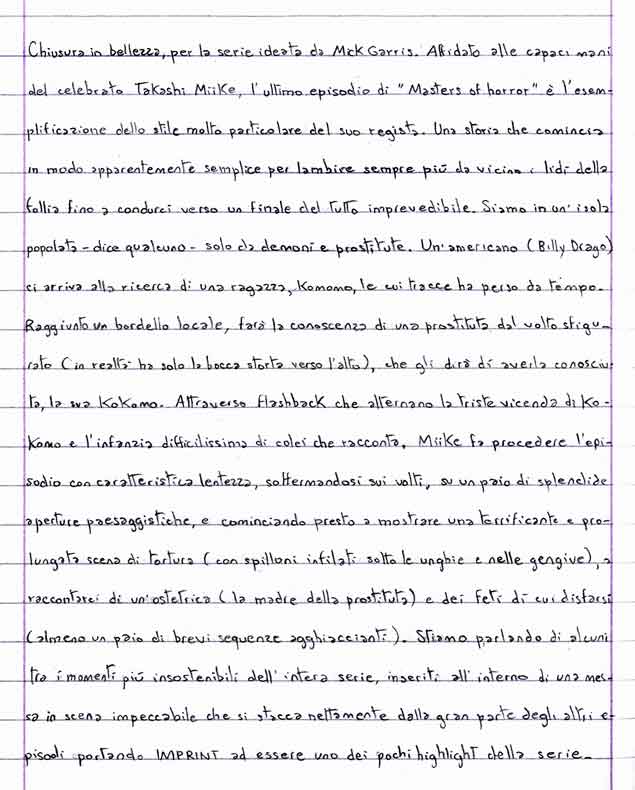 Chiusura in bellezza, per la serie ideata da Mick Garris. Affidato alle capaci mani
del celebrato Takashi Miike, l'ultimo episodio di "Masters of horror" è l'esem-
plificazione dello stile molto particolare del suo regista. Una storia che comincia
in modo apparentemente semplice per lambire sempre più da vicino i lidi della
follia fino a condurci verso un finale del tutto imprevedibile. Siamo in un'isola
popolata - dice qualcuno - solo da demoni e prostitute. Un'americano (Billy Drago)
ci arriva alla ricerca di una ragazza, Komomo, le cui tracce ha perso da tempo.
Raggiunto un bordello locale, farà la conoscenza di una prostituta dal volto sfigu-
rato (in realtà ha solo la bocca storta verso l'alto), che gli dirà di averla conosciu-
ta, la sua Kokomo. Attraverso flashback che alternano la triste vicenda di Ko-
komo e l'infanzia difficilissima di colei che racconta, Miike fa procedere l'epi-
sodio con caratteristica lentezza, soffermandosi sui volti, su un paio di splendide
aperture paesaggistiche, e cominciando presto a mostrare una terrificante e pro-
lungata scena di tortura (con spilloni infilati sotto le unghie e nelle gengive), a
raccontarci di un'ostetrica (la madre della prostituta) e dei feti di cui disfarsi
(almeno un paio di brevi sequenze agghiaccianti). Stiamo parlando di alcuni
tra i momenti più insostenibili dell'intera serie, inseriti all'interno di una mes-
sa in scena impeccabile che si stacca nettamente dalla gran parte degli altri e-
pisodi portando IMPRINT ad essere uno dei pochi highlight della serie.